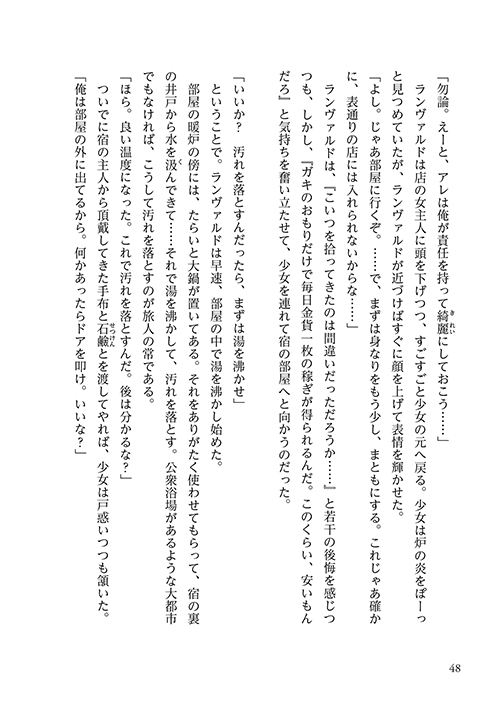 「勿論。えーと、アレは俺が責任を持って綺麗にしておこう……」
ランヴァルドは店の女主人に頭を下げつつ、すごすごと少女の元へ戻る。少女は炉の炎をぼーっ
と見つめていたが、ランヴァルドが近づけばすぐに顔を上げて表情を輝かせた。
「よし。じゃあ部屋に行くぞ。……で、まずは身なりをもう少し、まともにする。これじゃあ確か
に、表通りの店には入れられないからな……」
ランヴァルドは、『こいつを拾ってきたのは間違いだっただろうか……』と若干の後悔を感じつ
つも、しかし、『ガキのおもりだけで毎日金貨一枚の稼ぎが得られるんだ。このくらい、安いもん
だろ』と気持ちを奮い立たせて、少女を連れて宿の部屋へと向かうのだった。
「いいか？　汚れを落とすんだったら、まずは湯を沸かせ」
ということで。ランヴァルドは早速、部屋の中で湯を沸かし始めた。
部屋の暖炉の傍には、たらいと大鍋が置いてある。それをありがたく使わせてもらって、宿の裏
の井戸から水を汲んできて……それで湯を沸かして、汚れを落とす。公衆浴場があるような大都市
でもなければ、こうして汚れを落とすのが旅人の常である。
「ほら。良い温度になった。これで汚れを落とすんだ。後は分かるな？」
ついでに宿の主人から頂戴してきた手布と石鹸とを渡してやれば、少女は戸惑いつつも頷いた。
「俺は部屋の外に出てるから。何かあったらドアを叩け。いいな？」
きれい
せっけん
48